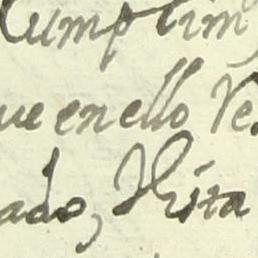 Cumplim
ue en ello Ve
ado, Vista